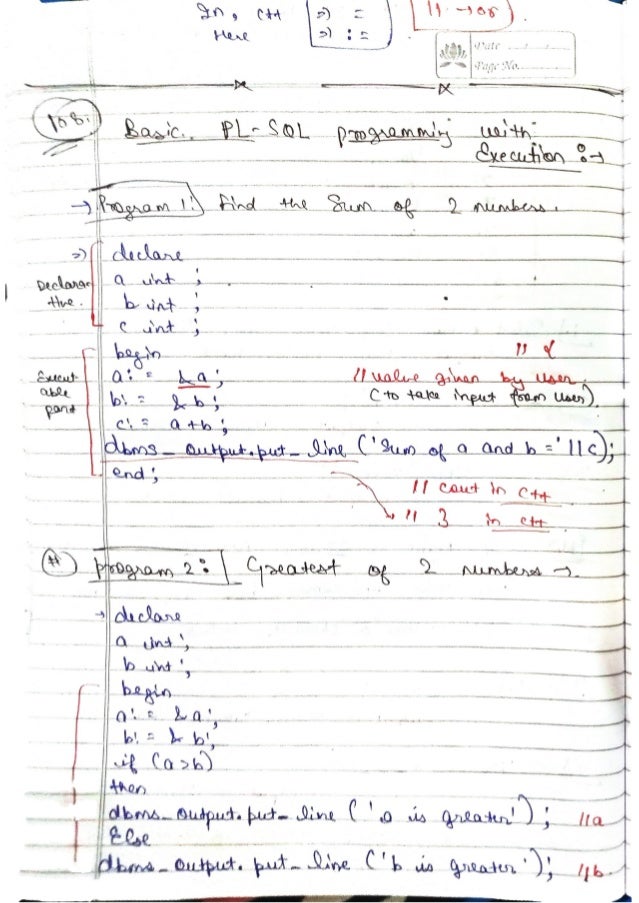 In, C++ => =
Here => :=
|| → or
Date
Page No.
108.
Basic. PL-SQL programming with
Execution :→
→ Program 1: find the Sum of 2 numbers.
=> declare
Declara-
tive.
a int ;
b int ;
c int ;
begin // {
Execut
able
part
a: = &a; // value given by user.
b: = & b; (to take input from user)
c: = a+b;
dbms_output.put_line ('Sum of a and b =' ||c);
end;
// cout in C++
// } in C++
(#) program 2: Greatest of 2 numbers →.
→ declare
a int;
b int;
begin
a: = &a;
b: = & b;
if (a>b)
then
dbms_output.put_line ('a is greater'); //a
Else
dbms_output.put_line ('b is greater'); //b.